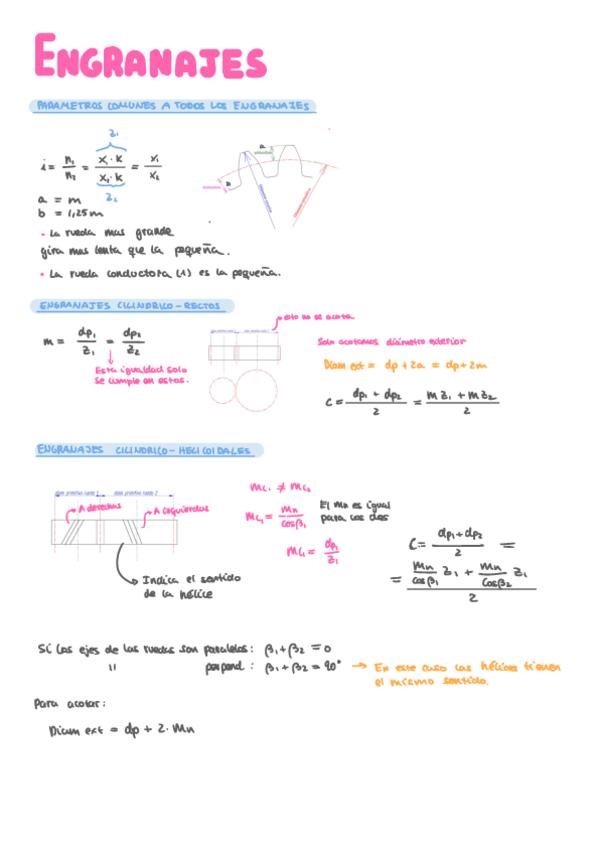 ENGRANAJES
PARAMETROS COMUNES A TODOS LOS ENGRANAJES
z₁
i = n₁/n₂ = x₁·k/x₁·k = x₁/x₂
z₂
a = m
b = 1,25m
- La rueda mas grande
gira mas lenta que la pequeña.
• La rueda conductora (1) es la pequeña.
a
b
ENGRANAJES CILINDRICO-RECTOS
esto no se acota
m = dp₁/z₁ = dp₂/z₂
Esta igualdad solo
se cumple en estos.
Solo acotamos diámetro exterior
Diam ext = dp + 2a = dp + 2m
c = dp₁ + dp₂/2 = mz₁ + mz₂/2
ENGRANAJES CILINDRICO-HELICOIDALES
diam primitivo rueda 1
diam primitivo rueda 2
A derechas
A izquierdas
Indica el sentido
de la hélice
mc₁ ≠ mc₂
mc₁ = mn/cosβ₁
El mn es igual
para los dos
mc₁ = dp₁/z₁
c = dp₁ + dp₂/2 =
= mn/cosβ₁ z₁ + mn/cosβ₂ z₁/2
Si los ejes de las ruedas son paralelos: β₁+β₂ = 0
" perpend: β₁+β₂ = 90° → En este caso las hélices tienen
el mismo sentido.
Para acotar:
Diam ext = dp + 2·mn